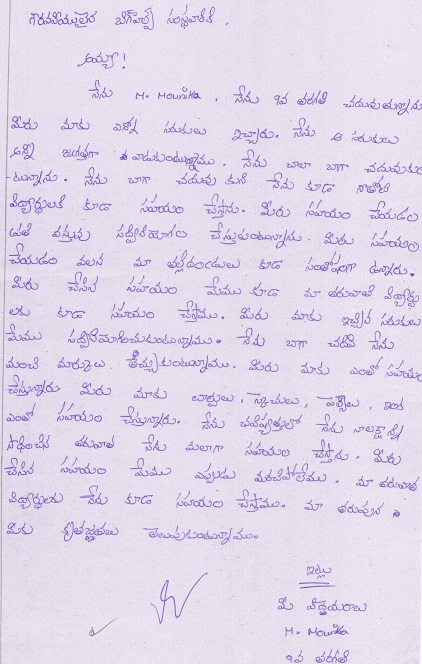 గౌరవనీయులైన బిగ్‌హెల్ప్ సంస్థవారికి,
అయ్యా!
నేను M. Mounika. నేను 9వ తరగతి చదువుతున్నాను
మీరు మాకు ఎన్నో సరుకులు ఇచ్చారు. నేను ఆ సరుకులు
అన్ని జాగ్రత్తగా వాడుకుంటున్నాము. నేను చాలా బాగా చదువుకుం
-టున్నాను. నేను బాగా చదువు కుని నేను కూడ నాతోటి
విద్యార్థులకి కూడ సహయం చేస్తాను. మీరు సహయం చేయడం
ప్రతి వస్తువు సద్వినియోగం చేసుకుంటున్నాను. మీరు సహయం
చేయడం వలన మా తల్లిదండ్రులు కూడ సంతోషంగా ఉన్నారు.
మీరు చేసిన సహయం మేము కూడ మా తరువాతి విద్యార్థు
లకు కూడ సహయం చేస్తాము. మీరు మాకు ఇచ్చిన సరుకులు
మేము సద్వినియోగించుకుంటున్నాము. నేను బాగా చదివి నేను
మంచి మార్కులు తెచ్చుకుంటున్నాము. మీరు మాకు ఎంతో సహయం
చేస్తున్నారు మీరు మాకు బుక్స్‌లు, స్కెచులు, పెన్సిలు, ఇంకా
ఎంతో సహయం చేస్తున్నారు. నేను భవిష్యత్తులో నేను నా లక్ష్యాన్ని
సాధించిన తరువాత నేను మీలాగా సహయం చేస్తాను. మీరు
చేసిన సహయం మేము ఎప్పుడు మరచిపోలేము. మా తరువాత
విద్యార్థులకు నేను కూడ సహయం చేస్తాము. మా తరుపున
మీకు కృతజ్ఞతలు తెలుపుకుంటున్నాము.
ఇట్లు
మీ విధేయురాలు
M. Mounika
9వ తరగతి